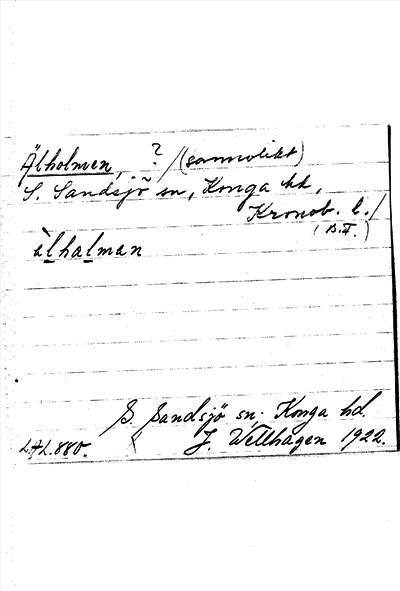 Älholmen, ? /(sannolikt)
S. Sandsjö sn, Konga hd,
Kronob. l./
(B.T.)
älhalman
S. Sandsjö sn. Konga hd.
LAL.880. J. Wellhagen 1922.